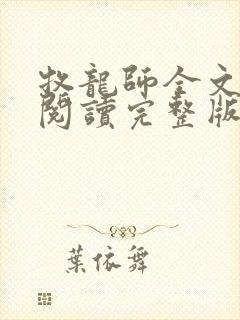 牧龍師全文
閱讀完整版
葉依舞